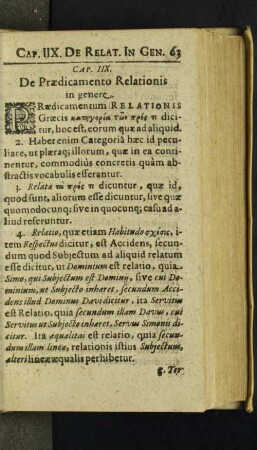 CAP. IIX. DE RELAT. IN GEN. 63
CAP. IIX.
De Prædicamento Relationis
in genere.
PRædicamentum RELATIONIS
Græcis κατηγορία τῶν πρός τι dici-
tur, hoc est, eorum quæ ad aliquid.
2. Habet enim Categoria hæc id pecu-
liare, ut pleraq; illorum, quæ in ea conti-
nentur, commodius concretis quàm ab-
stractis vocabulis efferantur.
3. Relata τὰ πρός τι dicuntur, quæ id,
quod sunt, aliorum esse dicuntur, sive quæ
quomodocunq; sive in quocunq; casu ad a-
liud referuntur.
4. Relatio, quæ etiam Habitudo σχέσις, i-
tem Respectus dicitur, est Accidens, secun-
dum quod Subjectum ad aliquid relatum
esse dicitur, ut Dominium est relatio, quia
Simo, qui Subjectum est Domini, sive cui Do-
minium, ut Subjecto inhæret, secundum Acci-
dens illud Dominus Davi dicitur. ita Servitus
est Relatio, quia secundum illam Davus, cui
Servitus ut Subjecto inhæret, Servus Simonis di-
citur. Ita æqualitas est relatio, quia secun-
dum illam linea, relationis istius Subjectum,
alteri lineæ æqualis perhibetur.